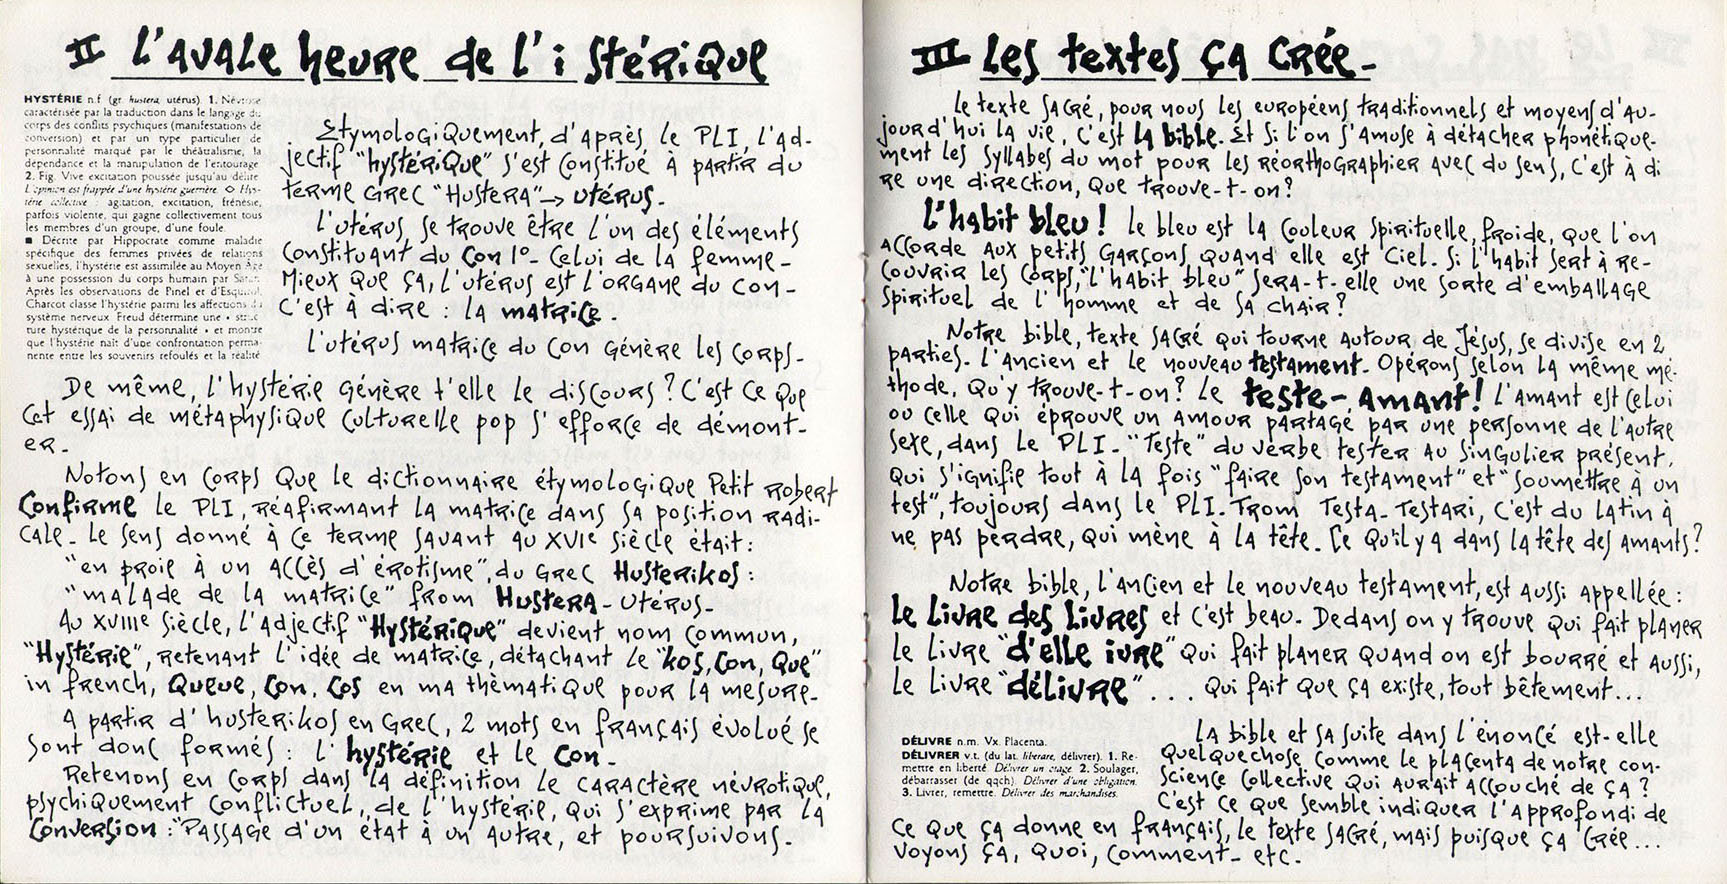 II L'AVALE heure de L'i stérique
HYSTÉRIE n.f (gr. hustera, utérus). 1. Névrose
caractérisée par la traduction dans le langage du
corps des conflits psychiques (manifestations de
conversion) et par un type particulier de
personnalité marqué par le théâtralisme, la
dépendance et la manipulation de l'entourage
2. Fig. Vive excitation poussée jusqu'au délire
L'opinion est frappée d'une hystérie guerrière. ◇ Hys-
térie collective : agitation, excitation, frénésie,
parfois violente, qui gagne collectivement tous
les membres d'un groupe, d'une foule.
■ Décrite par Hippocrate comme maladie
spécifique des femmes privées de relations
sexuelles, l'hystérie est assimilée au Moyen Âge
à une possession du corps humain par Satan.
Après les observations de Pinel et d'Esquirol,
Charcot classe l'hystérie parmi les affections du
système nerveux. Freud détermine une « struc-
ture hystérique de la personnalité » et montre
que l'hystérie naît d'une confrontation perma-
nente entre les souvenirs refoulés et la réalité
Etymologiquement, d'après le PLI, l'ad-
jectif "hystérique" s'est constitué à partir du
terme grec "Hustera" → utérus.
L'utérus se trouve être l'un des éléments
constituant du Con 1°- Celui de la femme-
Mieux que ça, l'utérus est l'organe du con-
C'est à dire : la matrice.
L'utérus matrice du con génère les corps-
De même, l'hystérie génère t'elle le discours ? C'est ce que
cet essai de métaphysique culturelle pop s'efforce de démont-
er.
Notons en corps que le dictionnaire étymologique Petit Robert
Confirme le PLI, réafirmant la matrice dans sa position radi-
cale. Le sens donné à ce terme savant au XVIe siècle était :
"en proie à un accès d'érotisme", du grec Husterikos :
"malade de la matrice" from Hustera - utérus-
Au XVIIIe siècle, l'adjectif "Hystérique" devient nom commun,
"Hystérie", retenant l'idée de matrice, détachant le "kos, Con, Que"
in french, Queue, Con, Cos en ma thèmatique pour la mesure-
A partir d'husterikos en grec, 2 mots en français évolué se
sont donc formés : l'hystérie et le con-
Retenons en corps dans la définition le caractère névrotique,
psychiquement conflictuel, de l'hystérie, qui s'exprime par la
Conversion : "Passage d'un état à un autre, et poursuivons-
III Les textes ça crée-
Le texte sacré, pour nous les européens traditionnels et moyens d'au-
jourd'hui la vie, c'est la bible. Et si l'on s'amuse à détacher phonétique-
ment les syllabes du mot pour les réorthographier avec du sens, c'est à di
re une direction, que trouve-t-on ?
L'habit bleu ! Le bleu est la couleur spirituelle, froide, que l'on
accorde aux petits garçons quand elle est ciel. Si l'habit sert à re-
couvrir les corps, "l'habit bleu" sera-t-elle une sorte d'emballage
spirituel de l'homme et de sa chair ?
Notre bible, texte sacré qui tourne autour de Jésus, se divise en 2
parties. L'ancien et le nouveau testament. Opérons selon la même mé-
thode, qu'y trouve-t-on ? Le teste-Amant ! L'amant est celui
ou celle qui éprouve un amour partagé par une personne de l'autre
sexe, dans le PLI. "Teste" du verbe tester au singulier présent,
qui s'ignifie tout à la fois "faire son testament" et "soumettre à un
test", toujours dans le PLI. From Testa-Testari, c'est du latin à
ne pas perdre, qui mène à la tête. Ce qu'il y a dans la tête des amants ?
Notre bible, l'ancien et le nouveau testament, est aussi appellée :
Le Livre des Livres et c'est beau. Dedans on y trouve qui fait planer
le livre "d'elle ivre" qui fait planer quand on est bourré et aussi,
le livre "délivre"... qui fait que ça existe, tout bêtement...
DÉLIVRE n.m. Vx. Placenta.
DÉLIVRER v.t. (du lat. liberare, délivrer). 1. Re-
mettre en liberté. Délivrer un otage. 2. Soulager,
débarrasser (de qqch). Délivrer d'une obligation.
3. Livrer, remettre. Délivrer des marchandises.
La bible et sa suite dans l'énoncé est-elle
quelquechose comme le placenta de notre con-
science collective qui aurait accouché de ça ?
C'est ce que semble indiquer l'approfondi de
ce que ça donne en français, le texte sacré, mais puisque ça crée...
Voyons ça, quoi, comment- etc.